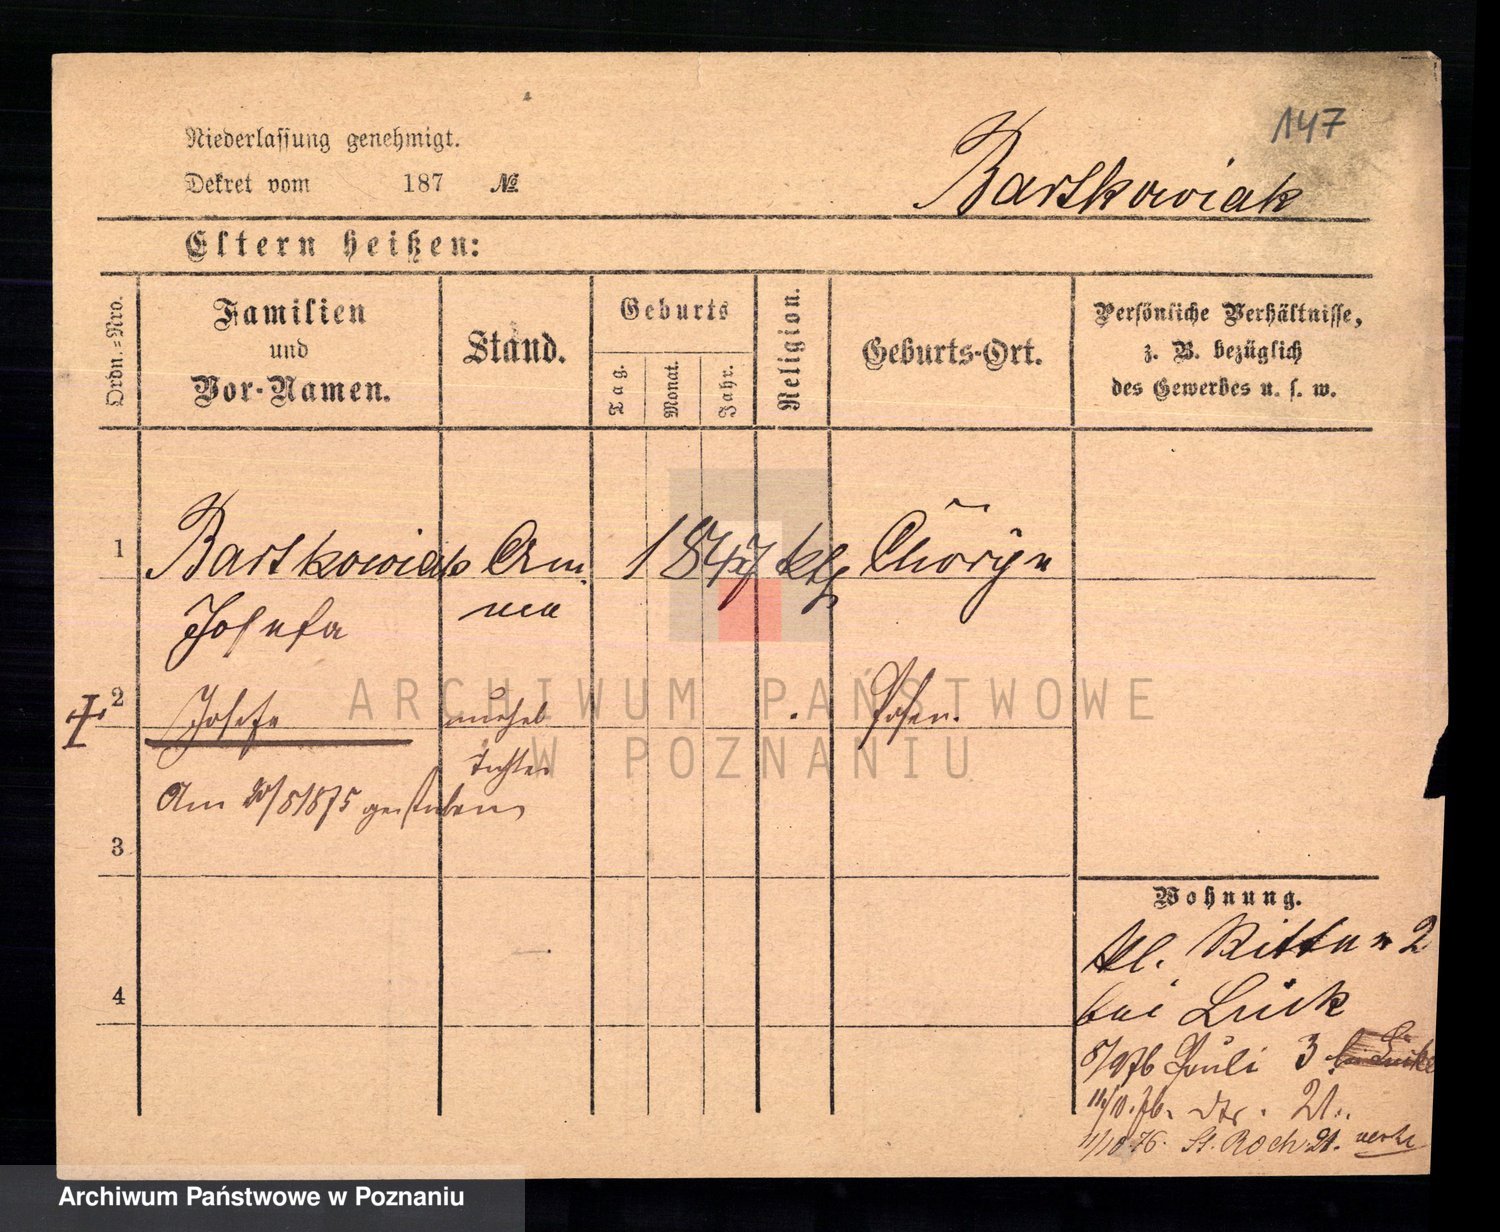 147
Niederlassung genehmigt.
Dekret vom 187 №
Bartkowiak
Eltern heißen:
Ordn.-Nro.
Familien
und
Vor-Namen.
Stand.
Geburts
Tag.
Monat.
Jahr.
Religion.
Geburts-Ort.
Persönliche Verhältnisse,
z. B. bezüglich
des Gewerbes u. s. w.
1 Bartkowiak Am 1847 kth Choryn
Josefa me
2 Josefa unehel Posen.
Tochter
Am 20/8 1875 gestorben
3
4
Wohnung.
kl. Ritter 2
bei Luck
5/9 76 Pauli 3
11/10. 76. dto. 21.
11/10 76. St. Roch 21.
ARCHIWUM PAŃSTWOWE
W POZNANIU
Archiwum Państwowe w Poznaniu